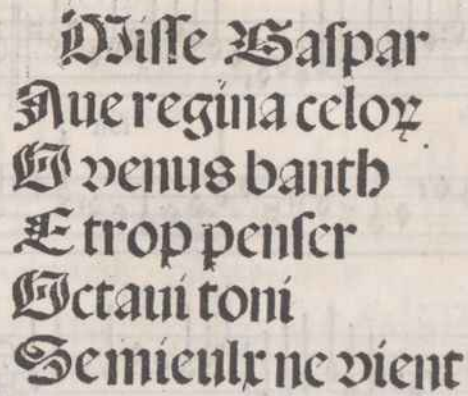 Misse Gaspar
Aue regina celoꝝ
O venus banth
E trop penser
Octaui toni
Se mieulx ne vient